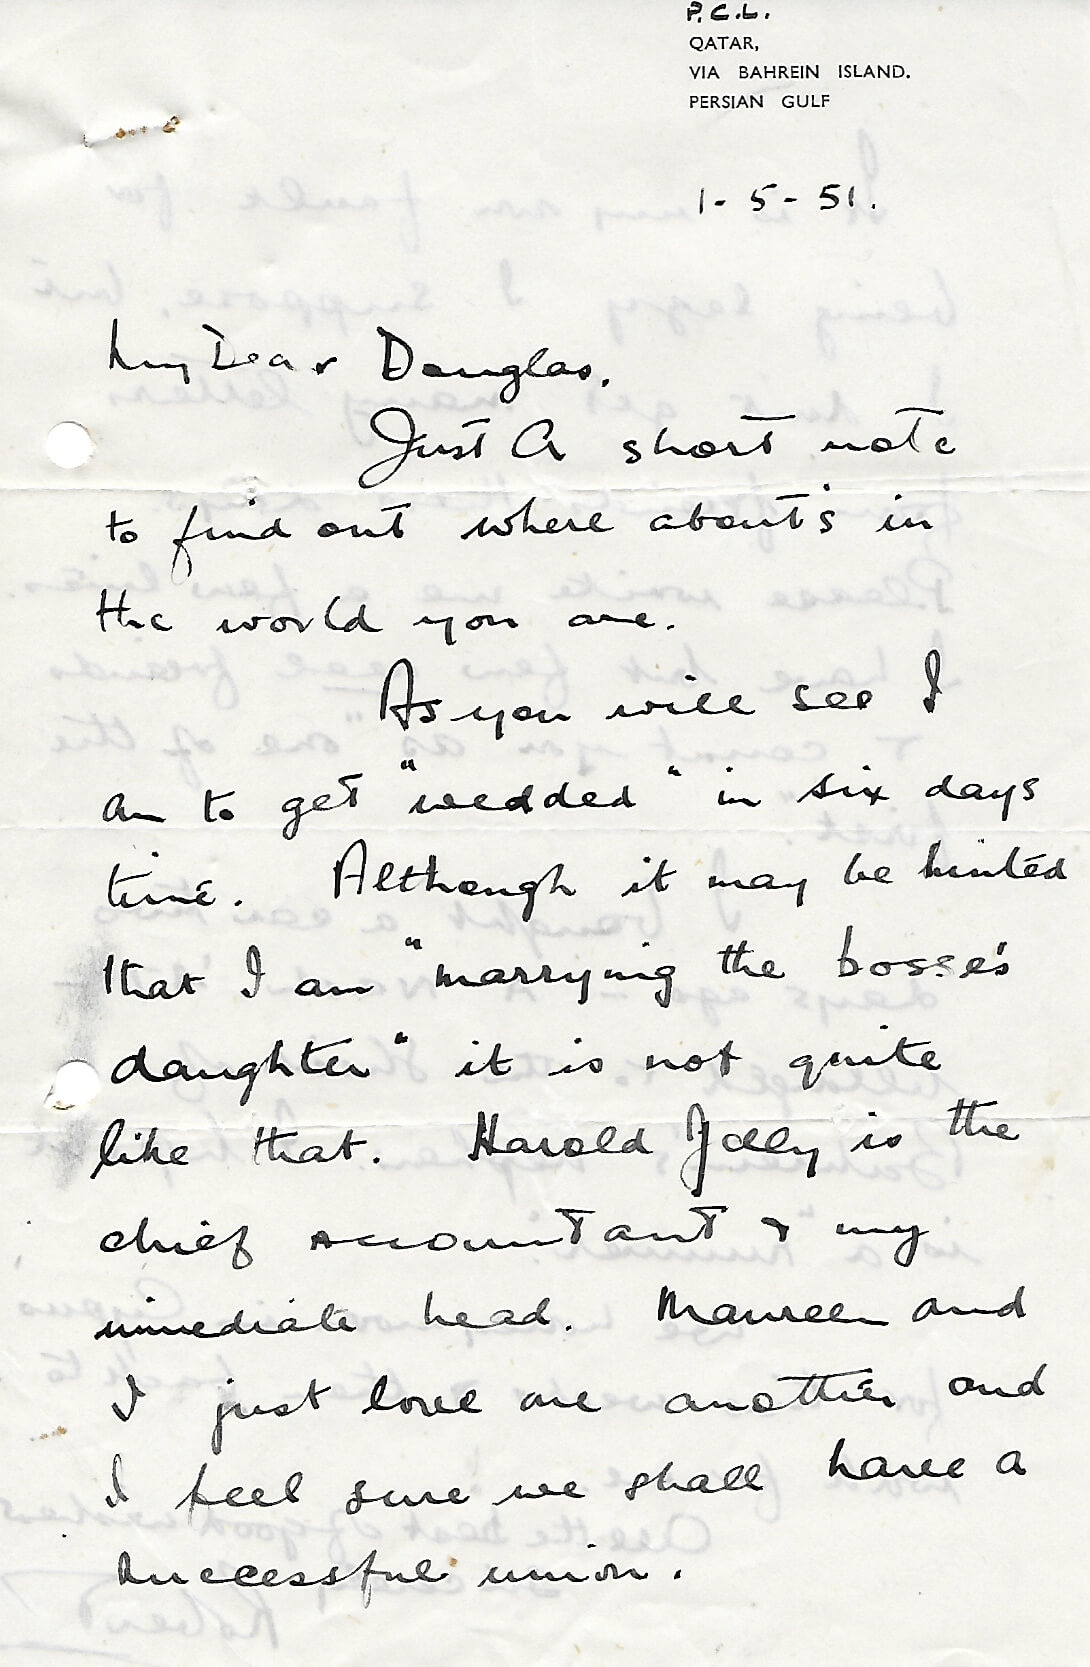 P.C.L.
QATAR,
VIA BAHREIN ISLAND.
PERSIAN GULF
1-5-51.
My Dear Douglas,
Just A short note
to find out where about's in
the world you are.
As you will see I
am to get "wedded" in six days
time. Although it may be hinted
that I am "marrying the bosse's
daughter" it is not quite
like that. Harold Jolly is the
chief accountant & my
immediate head. Maureen and
I just love one another and
I feel sure we shall have a
successful union.